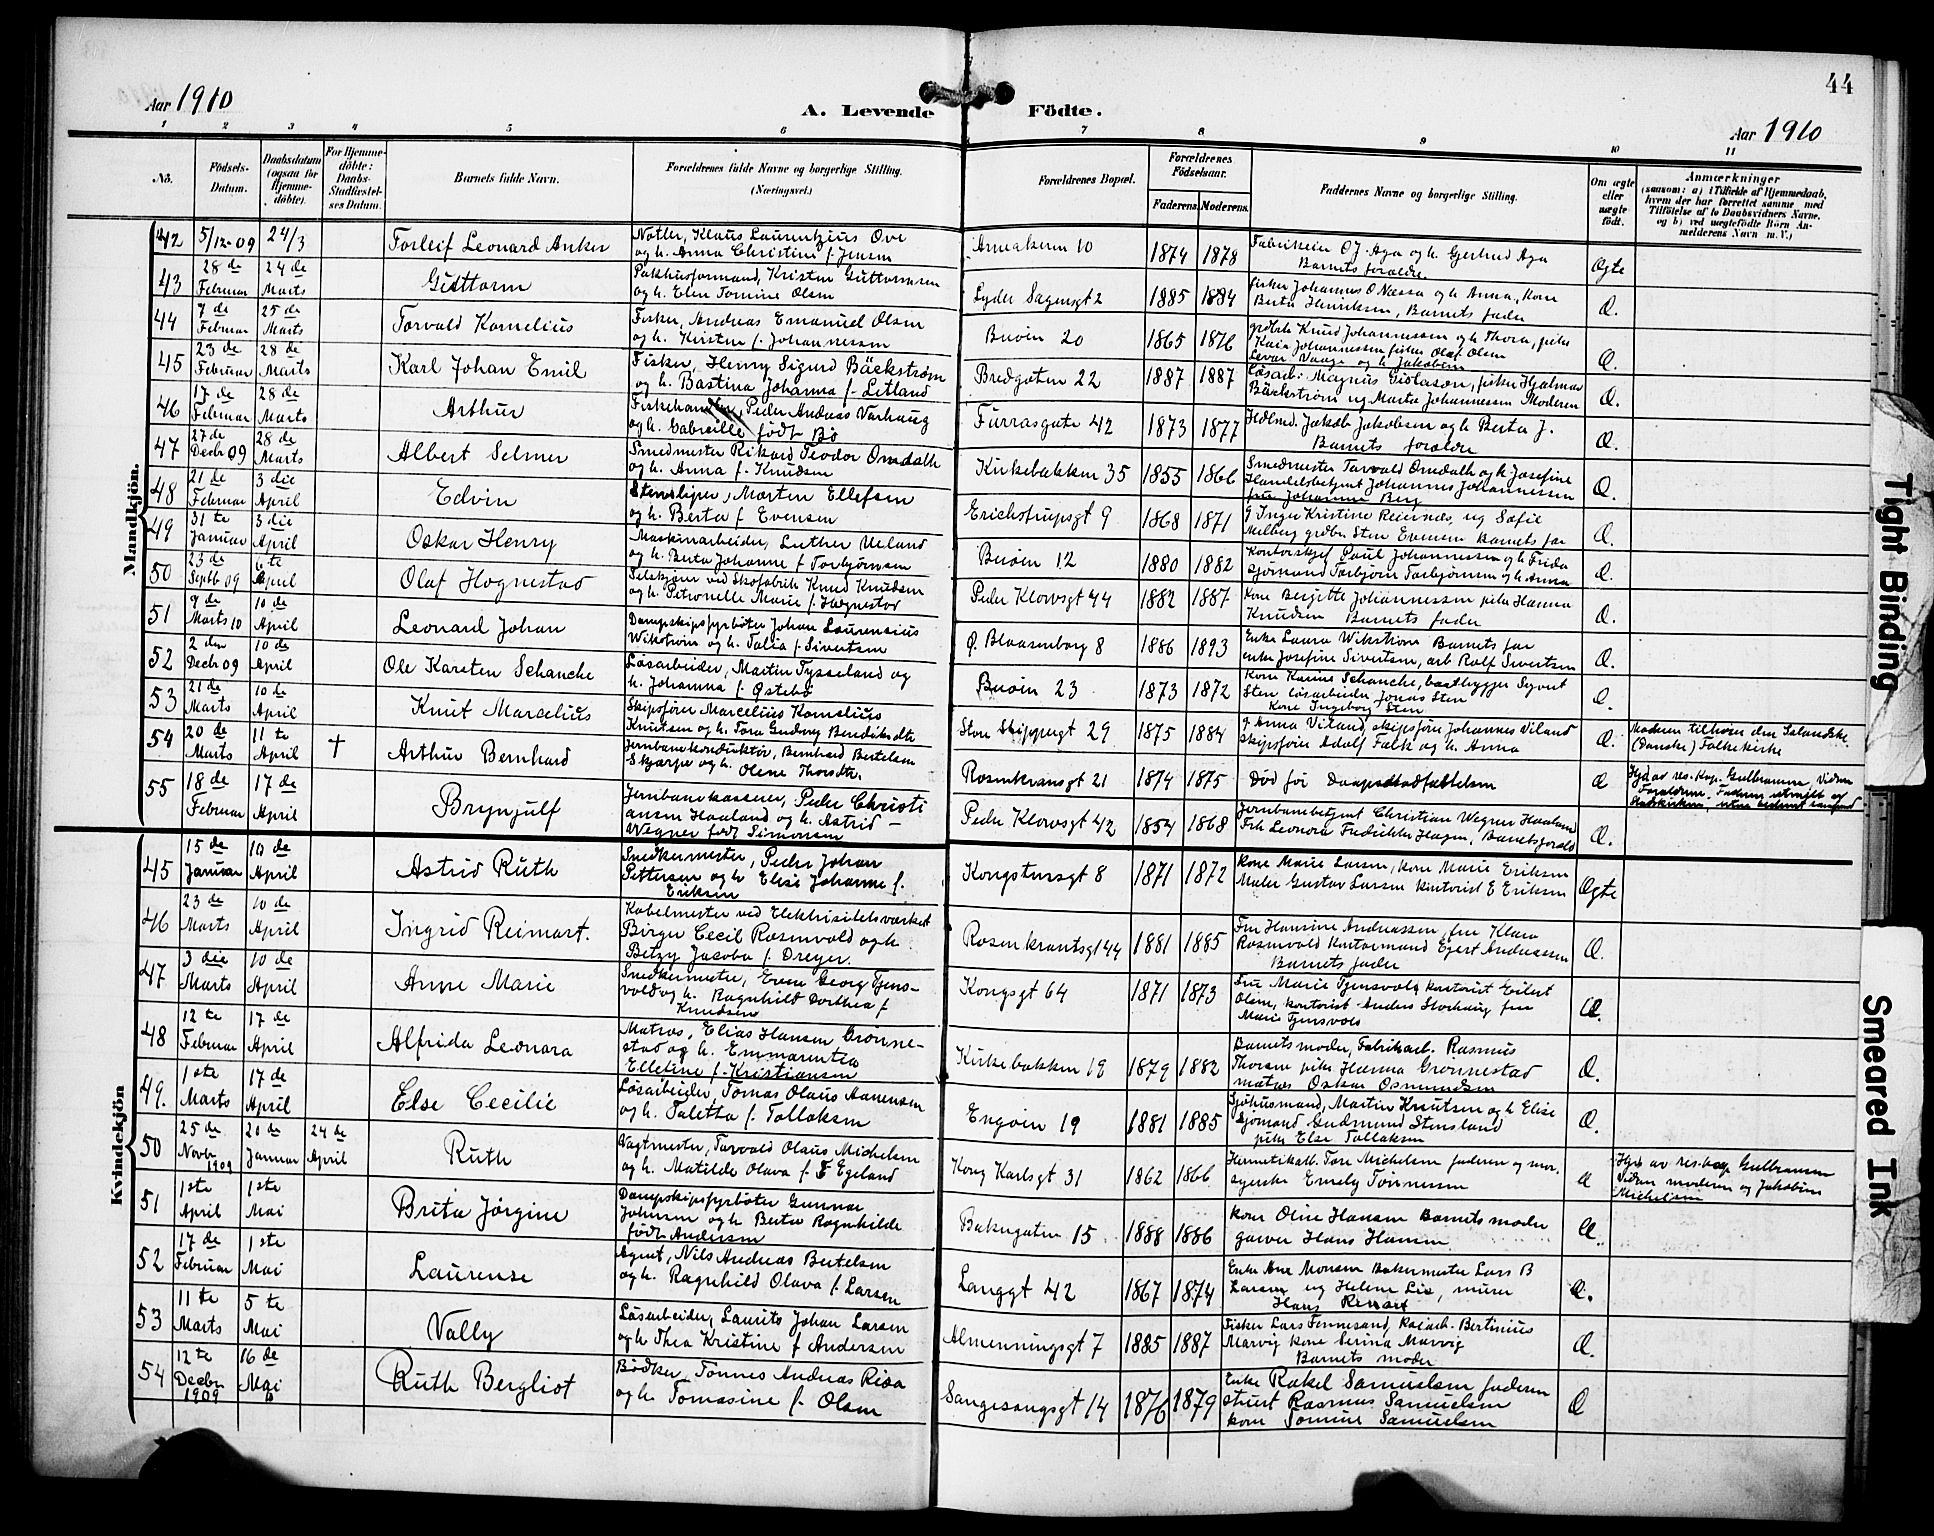 44
Aar 1910
A. Levende Födte.
Aar 1910
1 2 3 4 5 6 7 8 9 10 11
No.
Födsels-Datum.
Daabsdatum (ogsaa for Hjemme-döbte).
For Hjemme-döbte: Daabs-Stadfæstel-ses Datum.
Barnets fulde Navn.
Forældrenes fulde Navne og borgerlige Stilling. (Næringsvei.)
Forældrenes Bopæl.
Forældrenes Födselsaar.
Faderens. Moderens.
Faddernes Navne og borgerlige Stilling.
Om ægte eller uægte født.
Anmærkninger
(saasom: a) i Tilfælde af Hjemmedaab, hvem der har forrettet samme med Tilföielse af to Daabsvidners Navne, og b) ved uægtefödte Börn An-melderens Navn m. V.)
Mandkjön.
42 5/12-09 24/3 Torleif Leonard Anker
Notler, Klaus Laurentzius Ove
og h. Anna Christine f. Jensen
10 1874 1878
Barnets forældre
Ægte
43 28 de Februar 24 de Marts Guttorm
Pakhusformand, Kristen Guttormsen
og h. Elen Tomine Olsen
Lyder Sagensgt 2 1885 1884
fisker Johannes O Næssa og h. Anna, kone
Berta Henriksen, Barnets fader
Æ.
44 7 de Februar 25 de Marts Torvald Kornelius
Fisker, Andreas Emanuel Olsen
og h. Kirsten f. Johannessen
Buøen 20 1865 1876
Knud Johannessen og h. Thora, pike
Kaia Johannessen fisker Olaf Olsen
Æ.
45 23 de Februar 28 de Marts Karl Johan Emil
Fisker, Henry Sigurd Bäckstrøm
og h. Bastina Johanna f. Letland
Bredgaten 22 1887 1887
Løsarb. Magnus Gislason, fisker Hjalmar
Bäckstrøm og Marta Johannessen Moderen
Æ.
46 17 de Februar 28 de Marts Arthur
Fiskehandler, Peder Andreas Varhaug
og h. Gabreille født Bø
Furrasgate 42 1873 1877
Jakob Jakobsen og h. Berta J.
Barnets forældre
Æ.
47 27 de Decbr 09 28 de Marts Albert Selmer
Smedmester Rikard Teodor Omdalh
og h. Anna f. Knudsen
Kirkebakken 35 1855 1866
Smedmester Torvald Omdalh og h. Josefine
Handelsbetjent Johannes Johannessen
fru Johanne Berg
Æ.
48 21 de Februar 3 die April Edvin
Stensliper, Morten Ellefsen
og h. Berta f. Evensen
Erichstrupsgt 9 1868 1871
Inger Kristine Reiernæs, ug Sofie
Melberg Sten Evensen Barnets far
Æ.
49 31 te Januar 3 die April Oskar Henry
Maskinarbeider, Luther Ueland
og h. Berta Johanne f Torbjørnsen
Buøen 12 1880 1882
Kontorskjef Paul Johannessen og h Frida
sjømand Torbjørn Torbjørnsen og h. Anna
Æ.
50 23 de Septb 09 6 te April Olaf Hognestad
ved Skofabrik Knud Knudsen
og h. Petronelle Marie f. Hognestad
Peder Klowsgt 44 1882 1887
Kone Bergitte Johannessen pike Hanna
Knudsen Barnets fader
Æ.
51 9 de Marts 10 10 de April Leonard Johan
Dampskipsfyrbøter Johan Laurensius
Wikstrøm og h. Talia f. Sivertsen
Ø. Blaasenborg 8 1886 1893
Enke Laura Wikstrøm Barnets far
enke Josefine Sivertsen, arb Rolf Sivertsen
Æ.
52 2 den Decbr 09 10 de April Ole Karsten Schanche
Løsarbeider, Martin Tysseland og
h. Johanna f. Østebø
Buøen 23 1873 1872
Kone Karine Schanche, baatbygger Syvert
Sten løsarbeider Jonas Sten
Kone Ingeborg Sten
Æ.
53 21 de Marts 10 de April Knut Marcelius
Skipsfører Marcelius Kornelius
Knutsen og h. Tora Gudvey Benediksdtr
Store Skippergt 29 1875 1884
Anna Viland, skipsfører Johannes Viland
skipsfører Adolf Falk og h. Anna
Æ.
Moderen tilhører den Islandske
(Danske) Folkekirke
54 20 de Marts 11 te April + Arthur Bernhard
Jernbanekonduktør, Bernhard Bertelsen
Skjærpe og h. Olene Thorsdtr.
Rosenkransgt 21 1874 1875
Død før Daapsstadfæstelsen
Æ
Hjd av res. kap. Gulbransen, Vidner
Forældrene. Faderen utmeldt av
Statskirken,
55 18 de Februar 17 de April Brynjulf
Jernbanekasserer, Peder Christi
ansen Haaland og h. Astrid
Wegner født Simonsen
Peder Klowsgt 42 1854 1868
Jernbanebetjent Christian Wegner Haaland
Frk Leonora Fredrikke Hagen, Barnets forældre
Æ.
Kvindekjön
45 15 de Januar 10 de April Astrid Ruth
Snedkermester, Peder Johan
Pettersen og h Elise Johanne f.
Eriksen
Kongstensgt 8 1871 1872
Kone Marie Larsen, kone Marie Eriksen
Maler Gustav Larsen kontorist E Eriksen
Ægte
46 23 de Marts 10 de April Ingrid Reimart.
Kabelmester ved Elektrisitetsværket
Birger Cecil Rosenvold og h
Betzy Jacoba f. Dreyer.
Rosenkrantsgt 44 1881 1885
Fru Hansine Andreassen, fru Klara
Rosenvold Kontormand Egert Andreassen
Barnets fader
Æ.
47 3 die Marts 10 de April Anne Marie
Snedkermester, Even Georg Tjens-
vold og h. Ragnhild Dorthea f
Knudsen
Kongsgt 64 1871 1873
Fru Marie Tjensvold kontorist Eilert
Olsen, kontorist Anders Storhaug fru
Marie Tjensvold
Æ.
48 12 te Februar 17 de April Alfrida Leonara
Matros, Elias Hansen Grønne-
stad og h. Emmarentza
Elleline f. Kristiansen
Kirkebakken 19 1879 1882
Barnets moder, Fabrikarb. Rasmus
Thorsen pike Hanna Grønnestad
matros Oskar Osmundsen
Æ.
49. 1 ste Marts 17 de April Else Cecilie
Løsarbeider, Tomas Olaus Aanensen
og h. Taletta f. Tollaksen
Engøien 19 1881 1885
Sjøhusmand, Martin Knutsen og h Elise
Sjømand Gudmund Stensland
pike Else Tollaksen
Æ.
50 25 de Novbr 1909 20 de Januar 24 de April Ruth
Vagtmester, Torvald Olaus Michelsen
og h. Matilde Olava f. Egeland
Kong Karlsgt 31 1862 1866
Hermetikarb. Tore Michelsen faderen og mor.
syerske Emely Tønnesen
Æ
Hjd av res. kap Gulbransen
Vidner moderen og Jakobine
Michelsen
51 1 ste April 1 ste Mai Brita Jørgine
Dampskipsfyrbøter Gunnar
Johnsen og h Berta Ragnhilde
født Andersen
Bakergaten 15 1888 1886
Kone Oline Hansen Barnets moder
garver Hans Hansen
Æ.
52 17 de Februar 1 ste Mai Laurense
Agent, Nils Andreas Bertelsen
og h. Ragnhild Olava f. Larsen
Langgt 42 1867 1874
Enke Ane Monsen Bakermester Lars B
Larsen ug Helene Lie, murer
Hans
Æ.
53 11 te Marts 5 te Mai Vally
Løsarbeider, Laurits Johan Larsen
og h Thea Kristine f Andersen
Almenningsgt 7 1885 1887
Fisker Lars Bertinius
Marvig kone Serina Marvig
Barnets moder
Æ.
54 12 te Decbr 1909 16 de Mai Ruth Bergliot
Bødker, Tønnes Andreas Risa
og h. Tomasine f. Olsen
Sangesangsgt 14 1876 1879
Enke Rakel Samuelsen faderen
stuert Rasmus Samuelsen
kone Tomine Samuelsen
Æ
Tight Binding
Smeared Ink